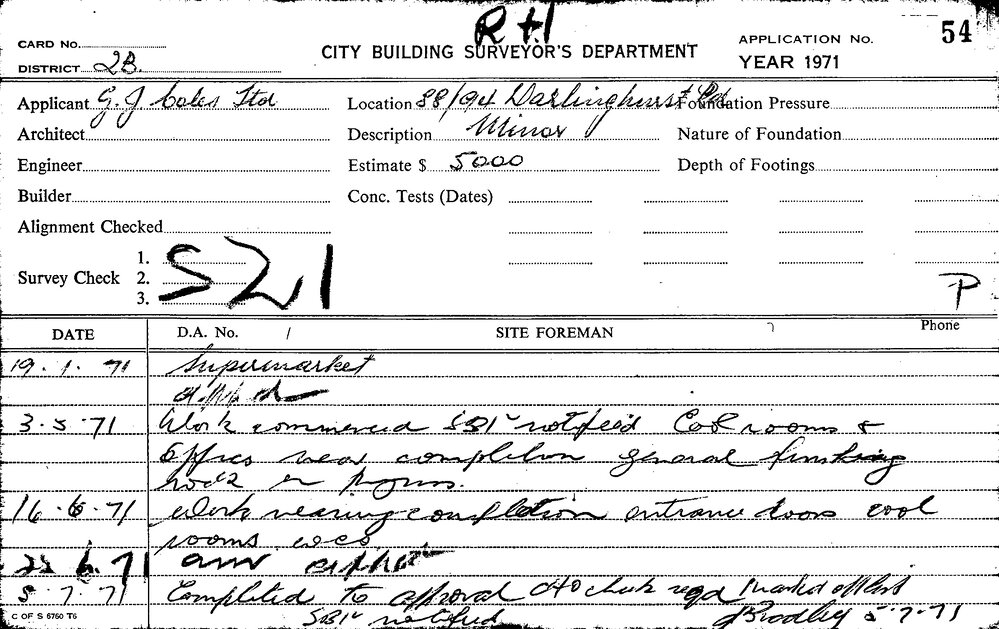 R+1
54
CARD No.
CITY BUILDING SURVEYOR'S DEPARTMENT
APPLICATION No.
DISTRICT 2B.
YEAR 1971
Applicant G. J Coles Ltd
Location 88/94 Darlinghurst Rd
Foundation Pressure
Architect
Description Minor
Nature of Foundation
Engineer
Estimate $ 5000
Depth of Footings
Builder
Conc. Tests (Dates)
Alignment Checked
Survey Check 1. 2. 3.
S21
P
DATE
D.A. No. /
SITE FOREMAN
Phone
19. 1. 71 Supermarket
3. 5. 71 Work commenced SBI notified Cool rooms &
Offices near completion general finishing
work in progress.
16. 6. 71 Work nearing completion entrance doors cool
rooms
22 6. 71
5. 7. 71 Completed to approval check reqd Marked off list
SBI notified JBradley 5-7-71
C OF S 5760 T6